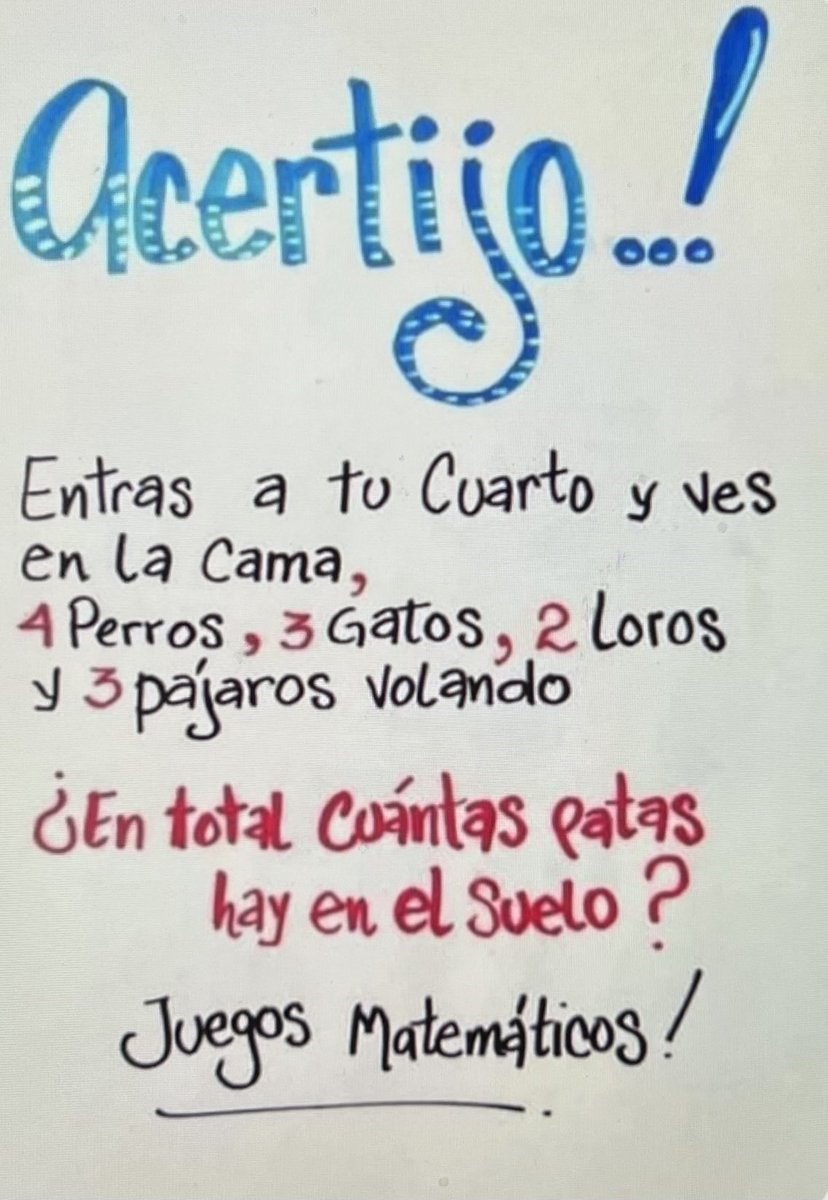 Acertijo...!
Entras a tu Cuarto y ves
en la Cama,
4 Perros, 3 Gatos, 2 Loros
y 3 pájaros volando
¿En total Cuántas patas
hay en el Suelo?
Juegos Matemáticos!